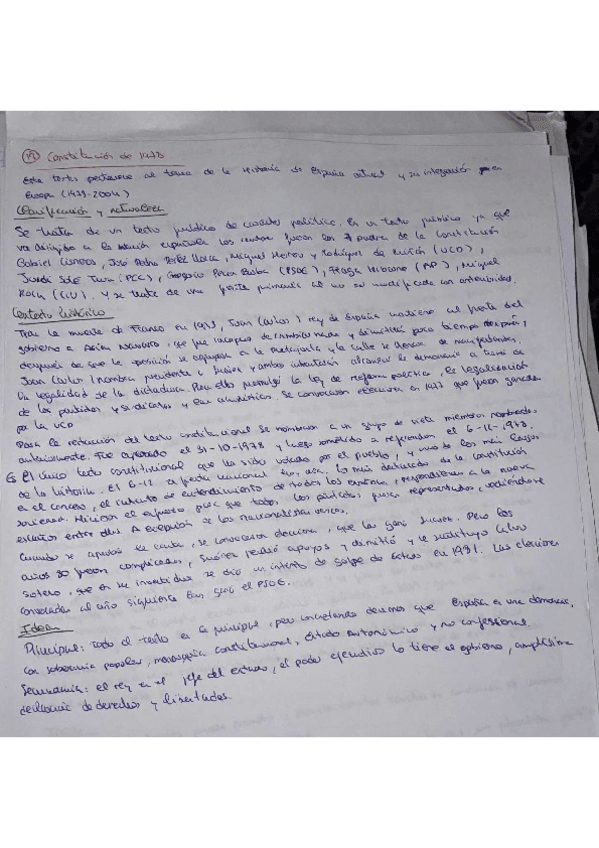 12 Constitución de 1978
Este texto pertenece al tema de la Historia de España actual y su integración en
Europa (1979-2004)
Clasificación y naturaleza
Se trata de un texto jurídico de carácter político. Es un texto público ya que
va dirigido a la nación española los autores fueron los 7 padres de la Constitución
Gabriel Cisneros, José Pedro Pérez Llorca, Miguel Herrero y Rodríguez de Miñón (UCD),
Jordi Solé Tura (PCC), Gregorio Peces Barba (PSOE), Fraga Iribarne (AP), Miguel
Roca (CIU). Y se trata de una fuente primaria al no ser modificado con anterioridad.
Contexto histórico
Tras la muerte de Franco en 1975, Juan Carlos I rey de España mantiene al frente del
gobierno a Arias Navarro, que fue incapaz de cambiar nada y dimitirá poco tiempo después,
después de que la oposición se agrupara en la y la calle se llenase de manifestantes.
Juan Carlos I nombra presidente a Suárez y ambos intentarán alcanzar la democracia a través de
la legalidad de la dictadura. Para ello promulgó la ley de reforma política, la legalización
de los partidos y sindicatos y la amnistía. Se convocaron elecciones en 1977 que fueron ganadas
por la UCD
Para la redacción del texto constitucional se nombraron a un grupo de siete miembros nombrados
anteriormente. Fue aprobado el 31-10-1978 y luego sometido a referendum el 6-12-1978.
Es el único texto constitucional que ha sido votado por el pueblo, y uno de los más largos
de la historia. El 6-12 es fiesta nacional hoy día. Lo más destacado de la constitución
es el consenso, el intento de entendimiento de todos los españoles, respondieron a la nueva
sociedad. Hicieron el esfuerzo para que todos los partidos fueran representados, cediéndose
escaños entre ellos A excepción de los nacionalistas vascos.
Cuando se aprobó la carta, se convocaron elecciones, que las ganó Suárez. Pero los
años 80 fueron complicados, Suárez perdió apoyos y dimitió y le sustituyó Calvo
Sotelo, que en su investidura se dio un intento de golpe de Estado en 1981. Las elecciones
convocadas al año siguiente las ganó el PSOE.
Ideas
Principal: todo el texto es la principal, pero concretando decimos que España es una democracia,
con soberanía popular, monarquía constitucional, Estado Autonómico y no confesional.
Secundaria: el rey es el jefe del estado, el poder ejecutivo lo tiene el gobierno, amplísima
declaración de derechos y libertades.